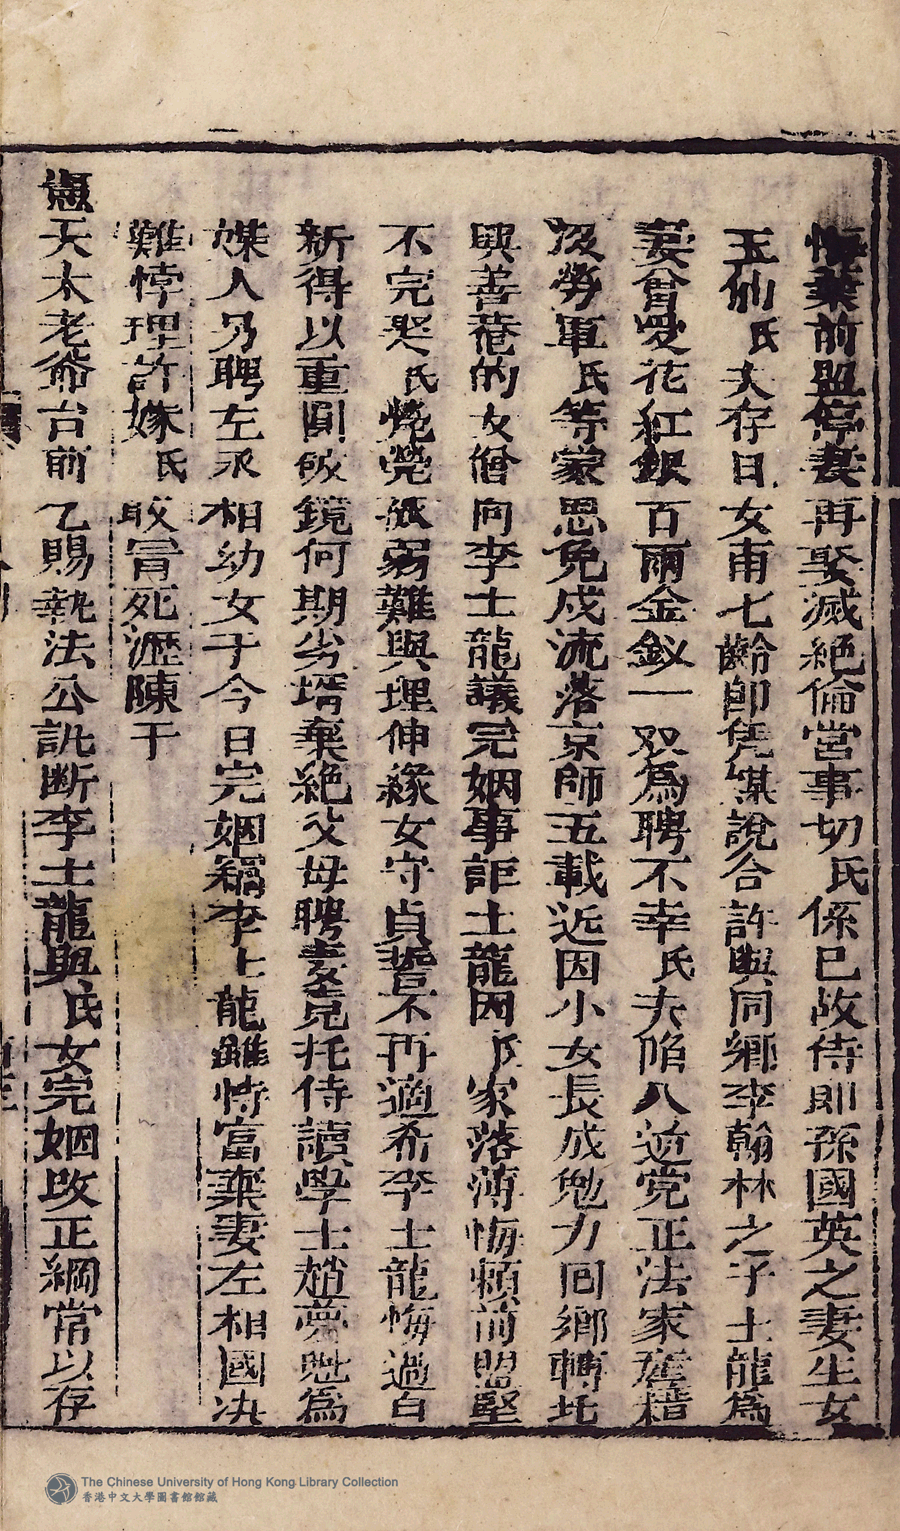 悔棄前盟停妻再娶滅絕倫常事切氏係已故侍郎孫國英之妻生女
玉仙氏夫存日女甫七齡即凭媒說合許與同鄉李翰林之子士龍為
妻曾受花紅銀百兩金釵一双為聘不幸氏夫陷八逆党正法家產籍
沒勞軍氏等蒙恩免戍流落京師五載近因小女長成勉力同鄉轉托
興善菴的女僧向李士龍議完姻事詎士龍因家落薄悔賴前盟堅
不完娶氏煢煢孤弱難與理伸緣女守貞誓不再適希李士龍悔過自
新得以重圓破鏡何期劣壻棄絕父母聘妻竟托侍讀學士趙夢魁為
媒人另聘左丞相幼女于今日完姻窃李士龍雖恃富棄妻左相國决
難悖理許嫁氏故冒死瀝陳于
憲天太老爺台前乙賜執法公訊断李士龍與氏女完姻改正綱常以存
The Chinese University of Hong Kong Library Collection
香港中文大學圖書館館藏